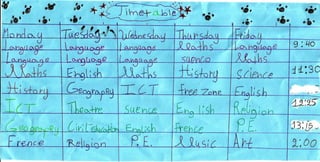 Timetable
Monday Tuesday Wednesday Thursday Friday
Language Language Language Maths Language 9:40
Language Language Language suence Maths
Maths English Maths History Science 11:30
History Geography ICT free zone English
ICT Theatre suence English Religion 12:45
Geography Civil Education English frence P.E. 13:15
Frence Religion P.E. Music Art 2:00